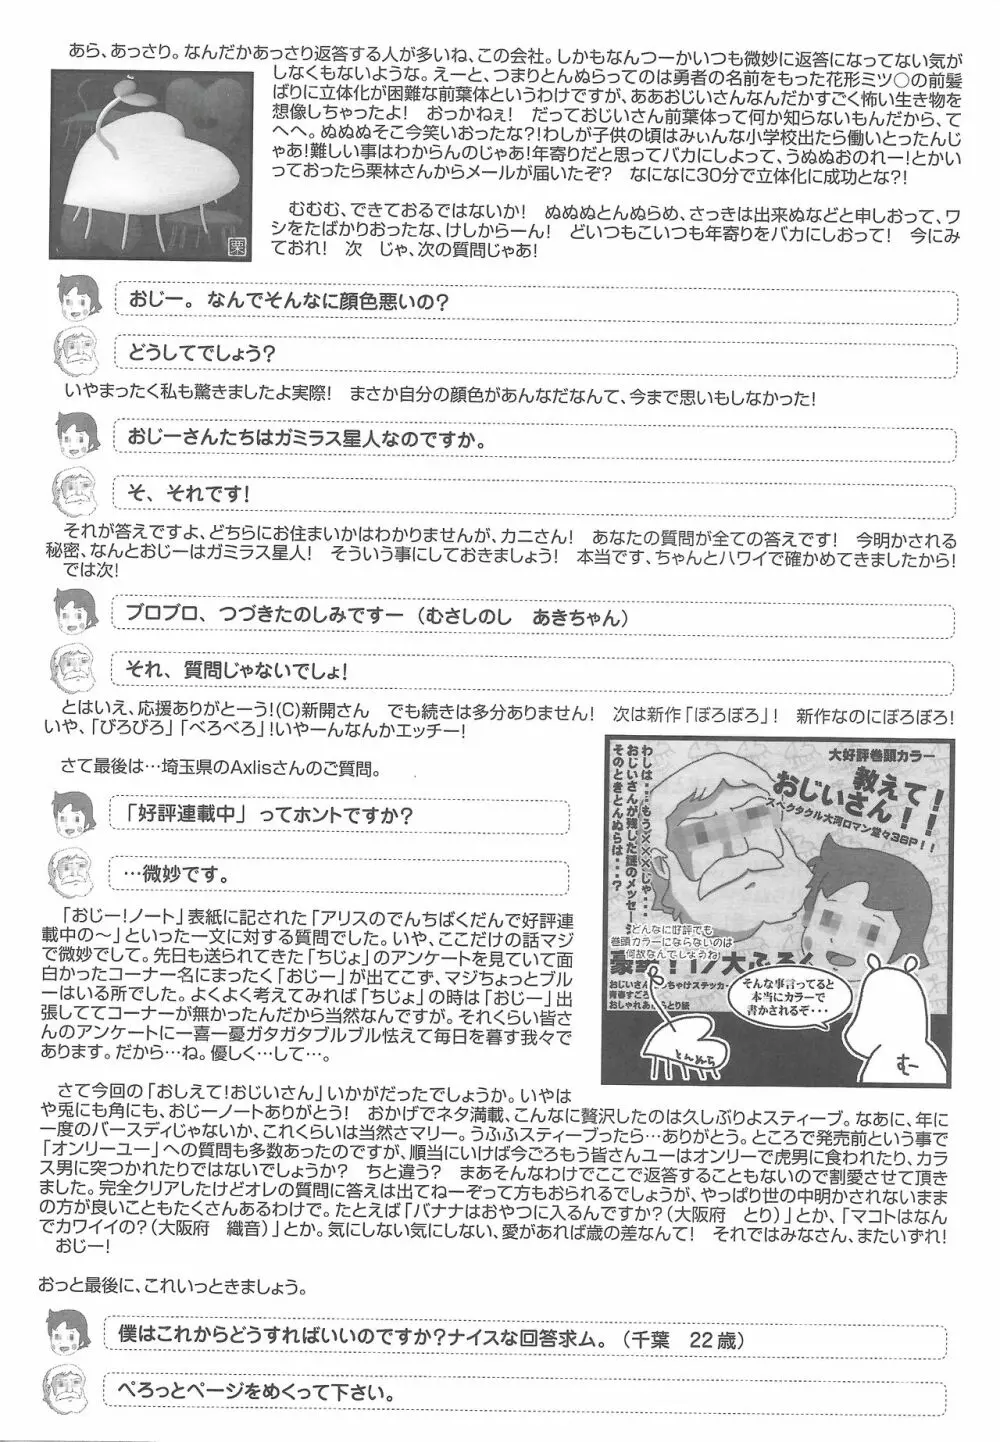 あら、あっさり。なんだかあっさり返答する人が多いね、この会社。しかもなんつーかいつも微妙に返答になってない気が
しなくもないような。えーと、つまりとんぬらってのは勇者の名前をもった花形ミツ○の前髪
ばりに立体化が困難な前葉体というわけですが、ああおじいさんなんだかすごく怖い生き物を
想像しちゃったよ！　おっかねぇ！　だっておじいさん前葉体って何か知らないもんだから、て
へへ。ぬぬぬそこ今笑いおったな？！わしが子供の頃はみぃんな小学校出たら働いとったんじ
ゃあ！難しい事はわからんのじゃあ！年寄りだと思ってバカにしよって、うぬぬおのれー！とかい
っておったら栗林さんからメールが届いたぞ？　なになに30分で立体化に成功とな？！
むむむ、できておるではないか！　ぬぬぬとんぬらめ、さっきは出来ぬなどと申しおって、ワ
シをたばかりおったな、けしからーん！　どいつもこいつも年寄りをバカにしおって！　今にみ
ておれ！　次　じゃ、次の質問じゃあ！
栗
おじー。なんでそんなに顔色悪いの？
どうしてでしょう？
いやまったく私も驚きましたよ実際！　まさか自分の顔色があんなだなんて、今まで思いもしなかった！
おじーさんたちはガミラス星人なのですか。
そ、それです！
それが答えですよ、どちらにお住まいかはわかりませんが、カニさん！　あなたの質問が全ての答えです！　今明かされる
秘密、なんとおじーはガミラス星人！　そういう事にしておきましょう！　本当です、ちゃんとハワイで確かめてきましたから！
では次！
ブロブロ、つづきたのしみですー（むさしのし　あきちゃん）
それ、質問じゃないでしょ！
とはいえ、応援ありがとーう！(C)新開さん　でも続きは多分ありません！　次は新作「ぼろぼろ」！　新作なのにぼろぼろ！
いや、「びろびろ」「べろべろ」！いやーんなんかエッチー！
さて最後は…埼玉県のAxlisさんのご質問。
「好評連載中」ってホントですか？
…微妙です。
「おじー！ノート」表紙に記された「アリスのでんちばくだんで好評連
載中の～」といった一文に対する質問でした。いや、ここだけの話マジ
で微妙でして。先日も送られてきた「ちじょ」のアンケートを見ていて面
白かったコーナー名にまったく「おじー」が出てこず、マジちょっとブル
ーはいる所でした。よくよく考えてみれば「ちじょ」の時は「おじー」出
張しててコーナーが無かったんだから当然なんですが。それくらい皆さ
んのアンケートに一喜一憂ガタガタブルブル怯えて毎日を暮す我々で
あります。だから…ね。優しく…して…。
大好評巻頭カラー
教えて！
おじいさん！！
スペクタクル大河ロマン堂々38P！！
わしは……もう×××じゃ……
おじいさんが残した謎のメッセージ
そのときとんぬらは……？
どんなに好評でも
巻頭カラーにならないのは
何故なんでしょうね
そんな事言ってると
本当にカラーで
書かされるぞ・・・
とんぬら
むー
さて今回の「おしえて！おじいさん」いかがだったでしょうか。いやは
や兎にも角にも、おじーノートありがとう！　おかげでネタ満載、こんなに贅沢したのは久しぶりよスティーブ。なあに、年に
一度のバースディじゃないか、これくらいは当然さマリー。うふふスティーブったら…ありがとう。ところで発売前という事で
「オンリーユー」への質問も多数あったのですが、順当にいけば今ごろもう皆さんユーはオンリーで虎男に食われたり、カラ
ス男に突つかれたりではないでしょうか？　ちと違う？　まあそんなわけでここで返答することもないので割愛させて頂き
ました。完全クリアしたけどオレの質問に答えは出てねーぞって方もおられるでしょうが、やっぱり世の中明かされないまま
の方が良いこともたくさんあるわけで。たとえば「バナナはおやつに入るんですか？（大阪府　とり）」とか、「マコトはなん
でカワイイの？（大阪府　織音）」とか。気にしない気にしない、愛があれば歳の差なんて！　それではみなさん、またいずれ！
おじー！
おっと最後に、これいっときましょう。
僕はこれからどうすればいいのですか？ナイスな回答求ム。（千葉　22歳）
ぺろっとページをめくって下さい。